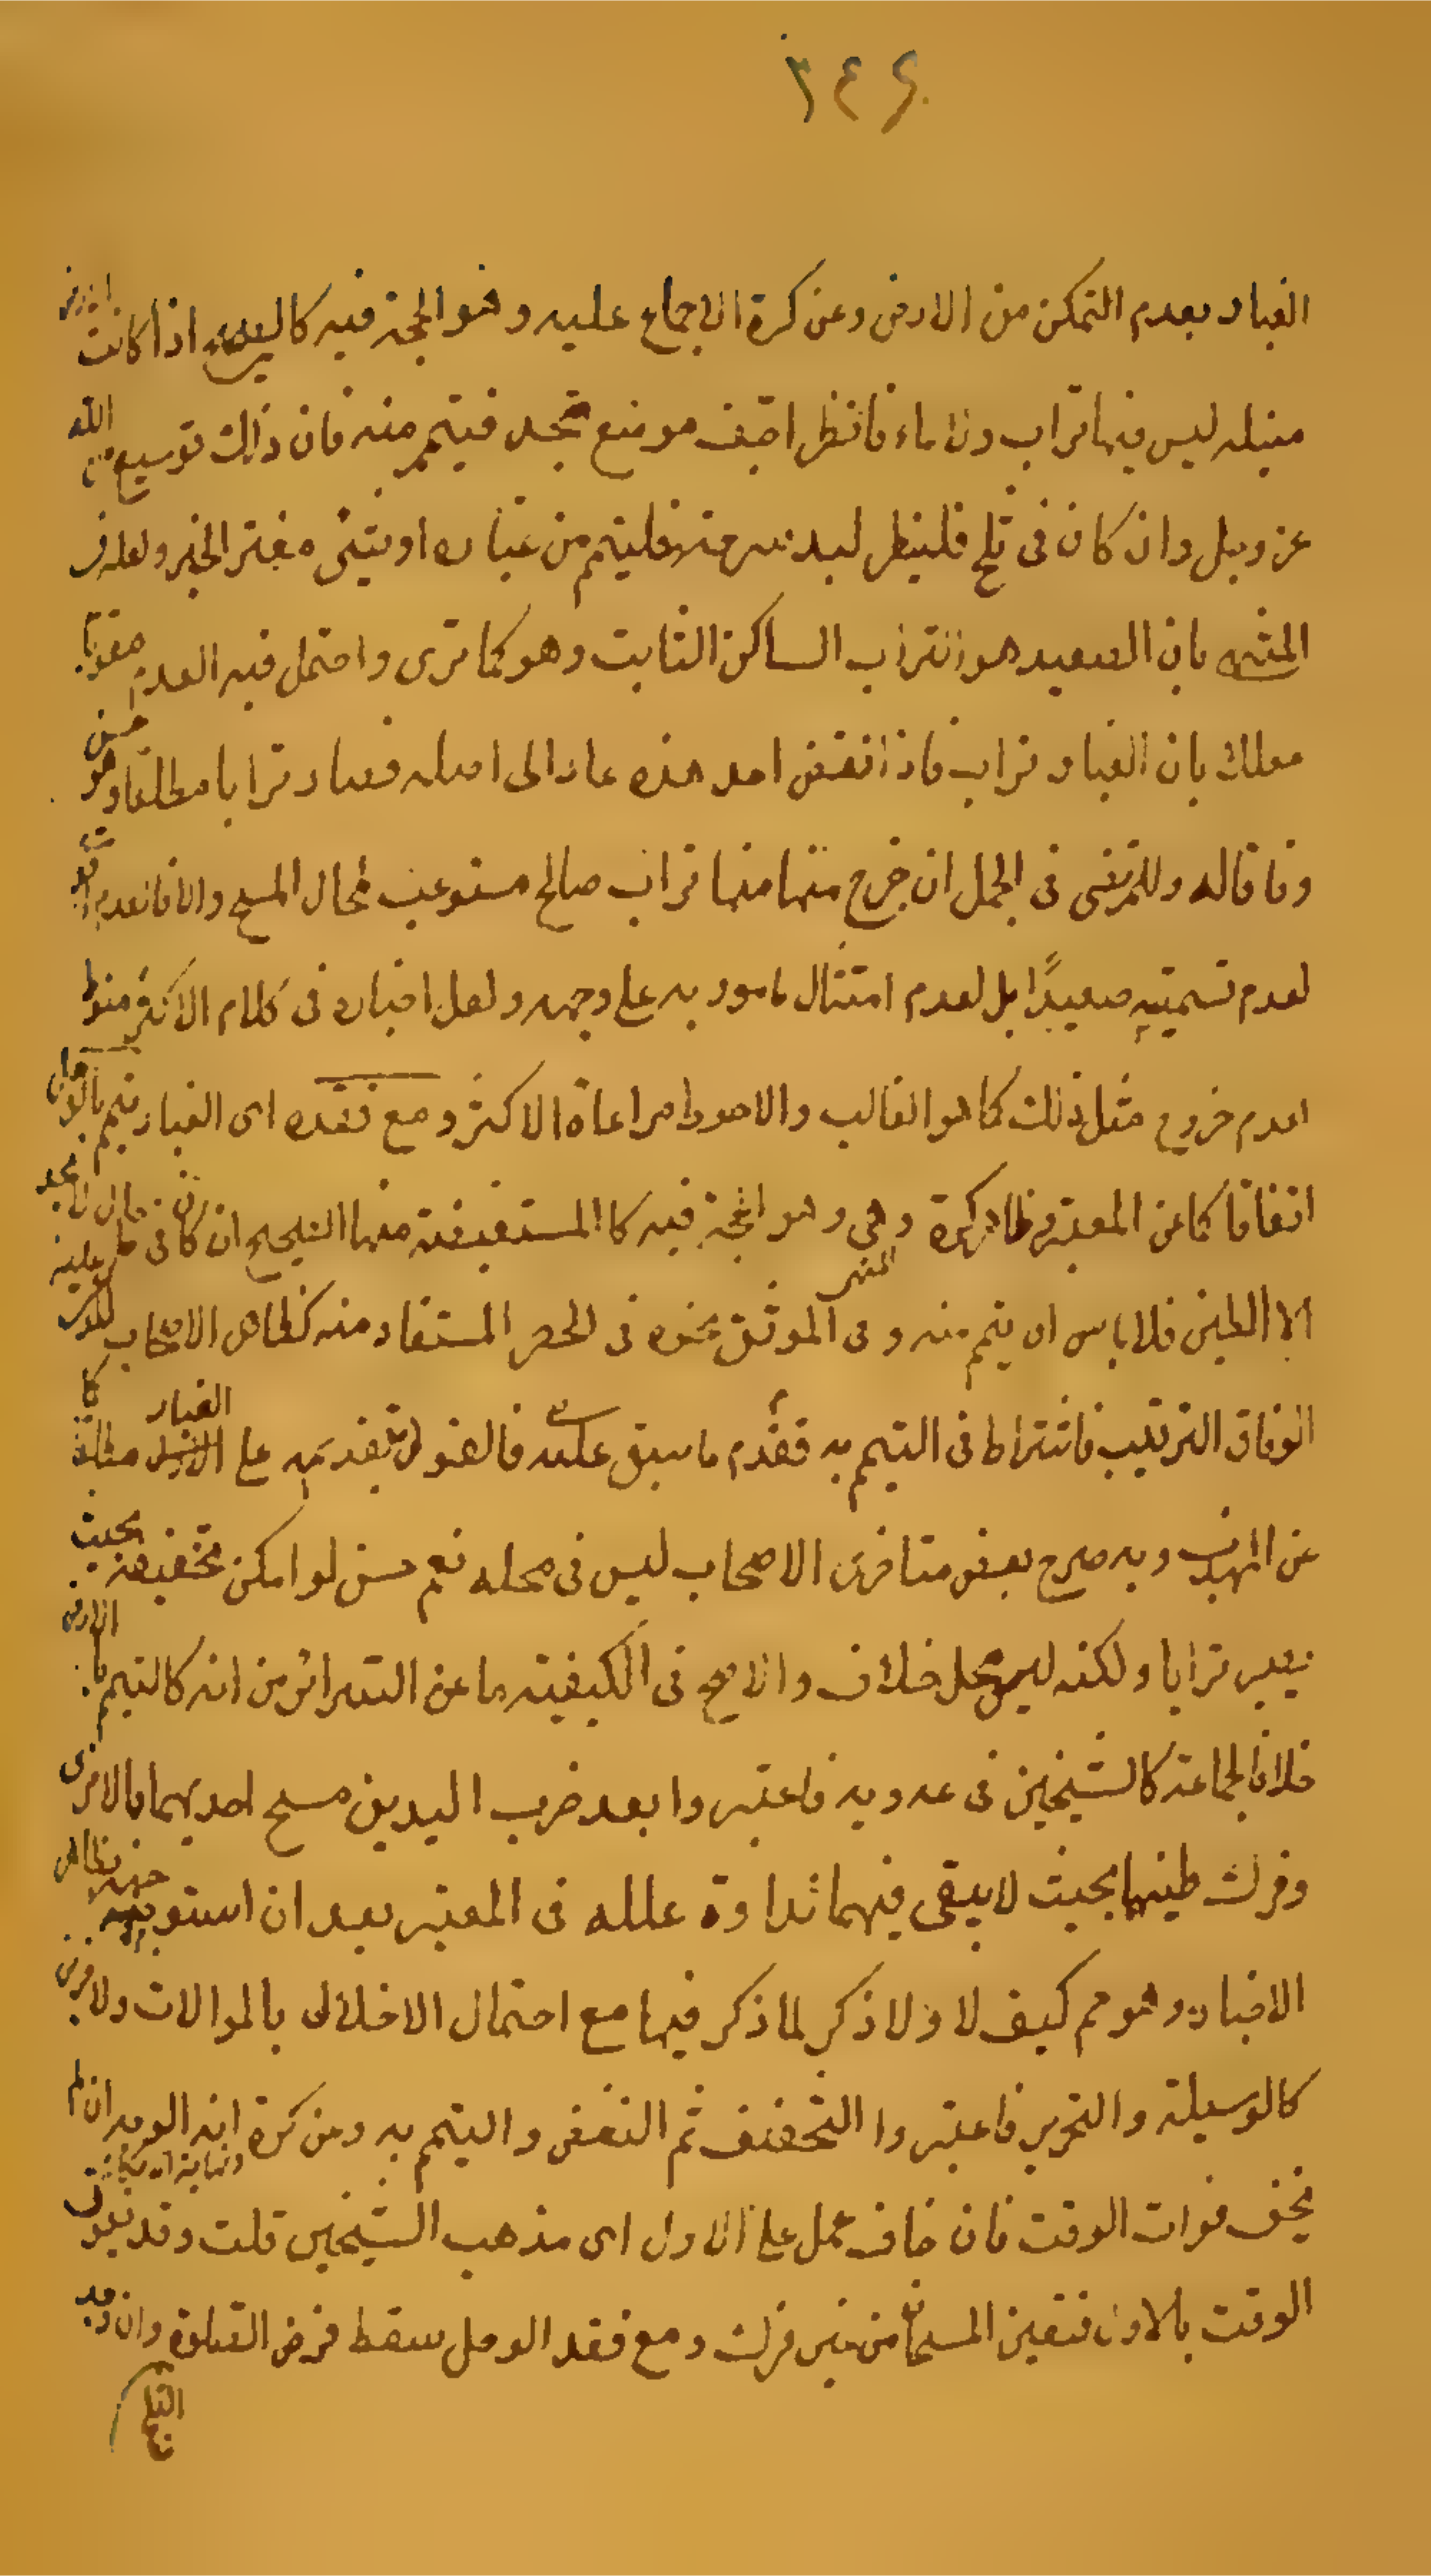 الغبار بعدم التمكن من الارض وعن كرة الاجماع عليه وهو الحجة فيه كالصحيح اذا كانت الارض
مبتلة ليس فيها تراب ولا ماء فانظر اجف موضع تجد فيتمم منه فان ذلك توسيع من الله
عز وجل وان كان في ثلج فلينظر لبد سرجه فليتيمم من غباره او شئ مغبر الخبر ولعله في
المنتهى بان الصعيد هو التراب الساكن الثابت وهو كما ترى واحتمل فيه العدم
معللا بان الغبار تراب فاذا نفض احد هذه عاد الى اصله فصار ترابا مطلقا وهو حسن
وفاقا له وللمرتضى في الجمل ان خرج منها تراب صالح مستوعب لمحال المسح والا فالعدم
لعدم تسميته صعيدًا بل لعدم امتثال مامور به على وجهه ولعل اخباره في كلام الاكثر
لعدم خروج مثل ذلك كما هو الغالب والاحوط مراعاة الاكثر ومع فقده اى الغبار تيمم بالوحل
اتفاقا كما عن المعتبر وظاهر كرة وهي وهو الحجة فيه كالمستفيضة منها الصحيح ان كان في حال لا يجد
الا الطين فلا باس ان يتيمم منه وفى الموثق نحوه فى الحصر المستفاد منه كظاهر الاصحاب
الوفاق الترتيب فاشتراط فى التيمم به فقدُ ما سبق عليه فالقول بتقديمه على الغبار مطلقا كما
عن المهذب وبه صرح بعض متاخرى الاصحاب ليس فى محله نعم حسن لو امكن تخفيفه بحيث
يصير ترابا ولكنه ليس محل خلاف والاصح فى الكيفية ما عن السرائر من انه كالتيمم بالارض
خلافا لجماعة كالشيخين فى فاعتبروا بعد ضرب اليدين مسح احديهما بالاخرى
وفرك طينهما بحيث لا يبقى فيهما نداوة علله فى المعتبر بعد ان استوجهه بظاهر
الاخبار وهو كيف لا ولا ذكر لما ذكر فيها مع احتمال الاخلال بالموالات ولاخرين
كالوسيلة والتحرير فاعتبروا التجفيف ثم النفض والتيمم به وعن كرة انه الوجه ان لم
يخف فوات الوقت فان خاف عمل على الاول اى مذهب الشيخين قلت وقد يفوت
الوقت بالاول فتعين المسح من غير فرك ومع فقد الوحل سقط فرض الصلوة وان وجد
الثلج